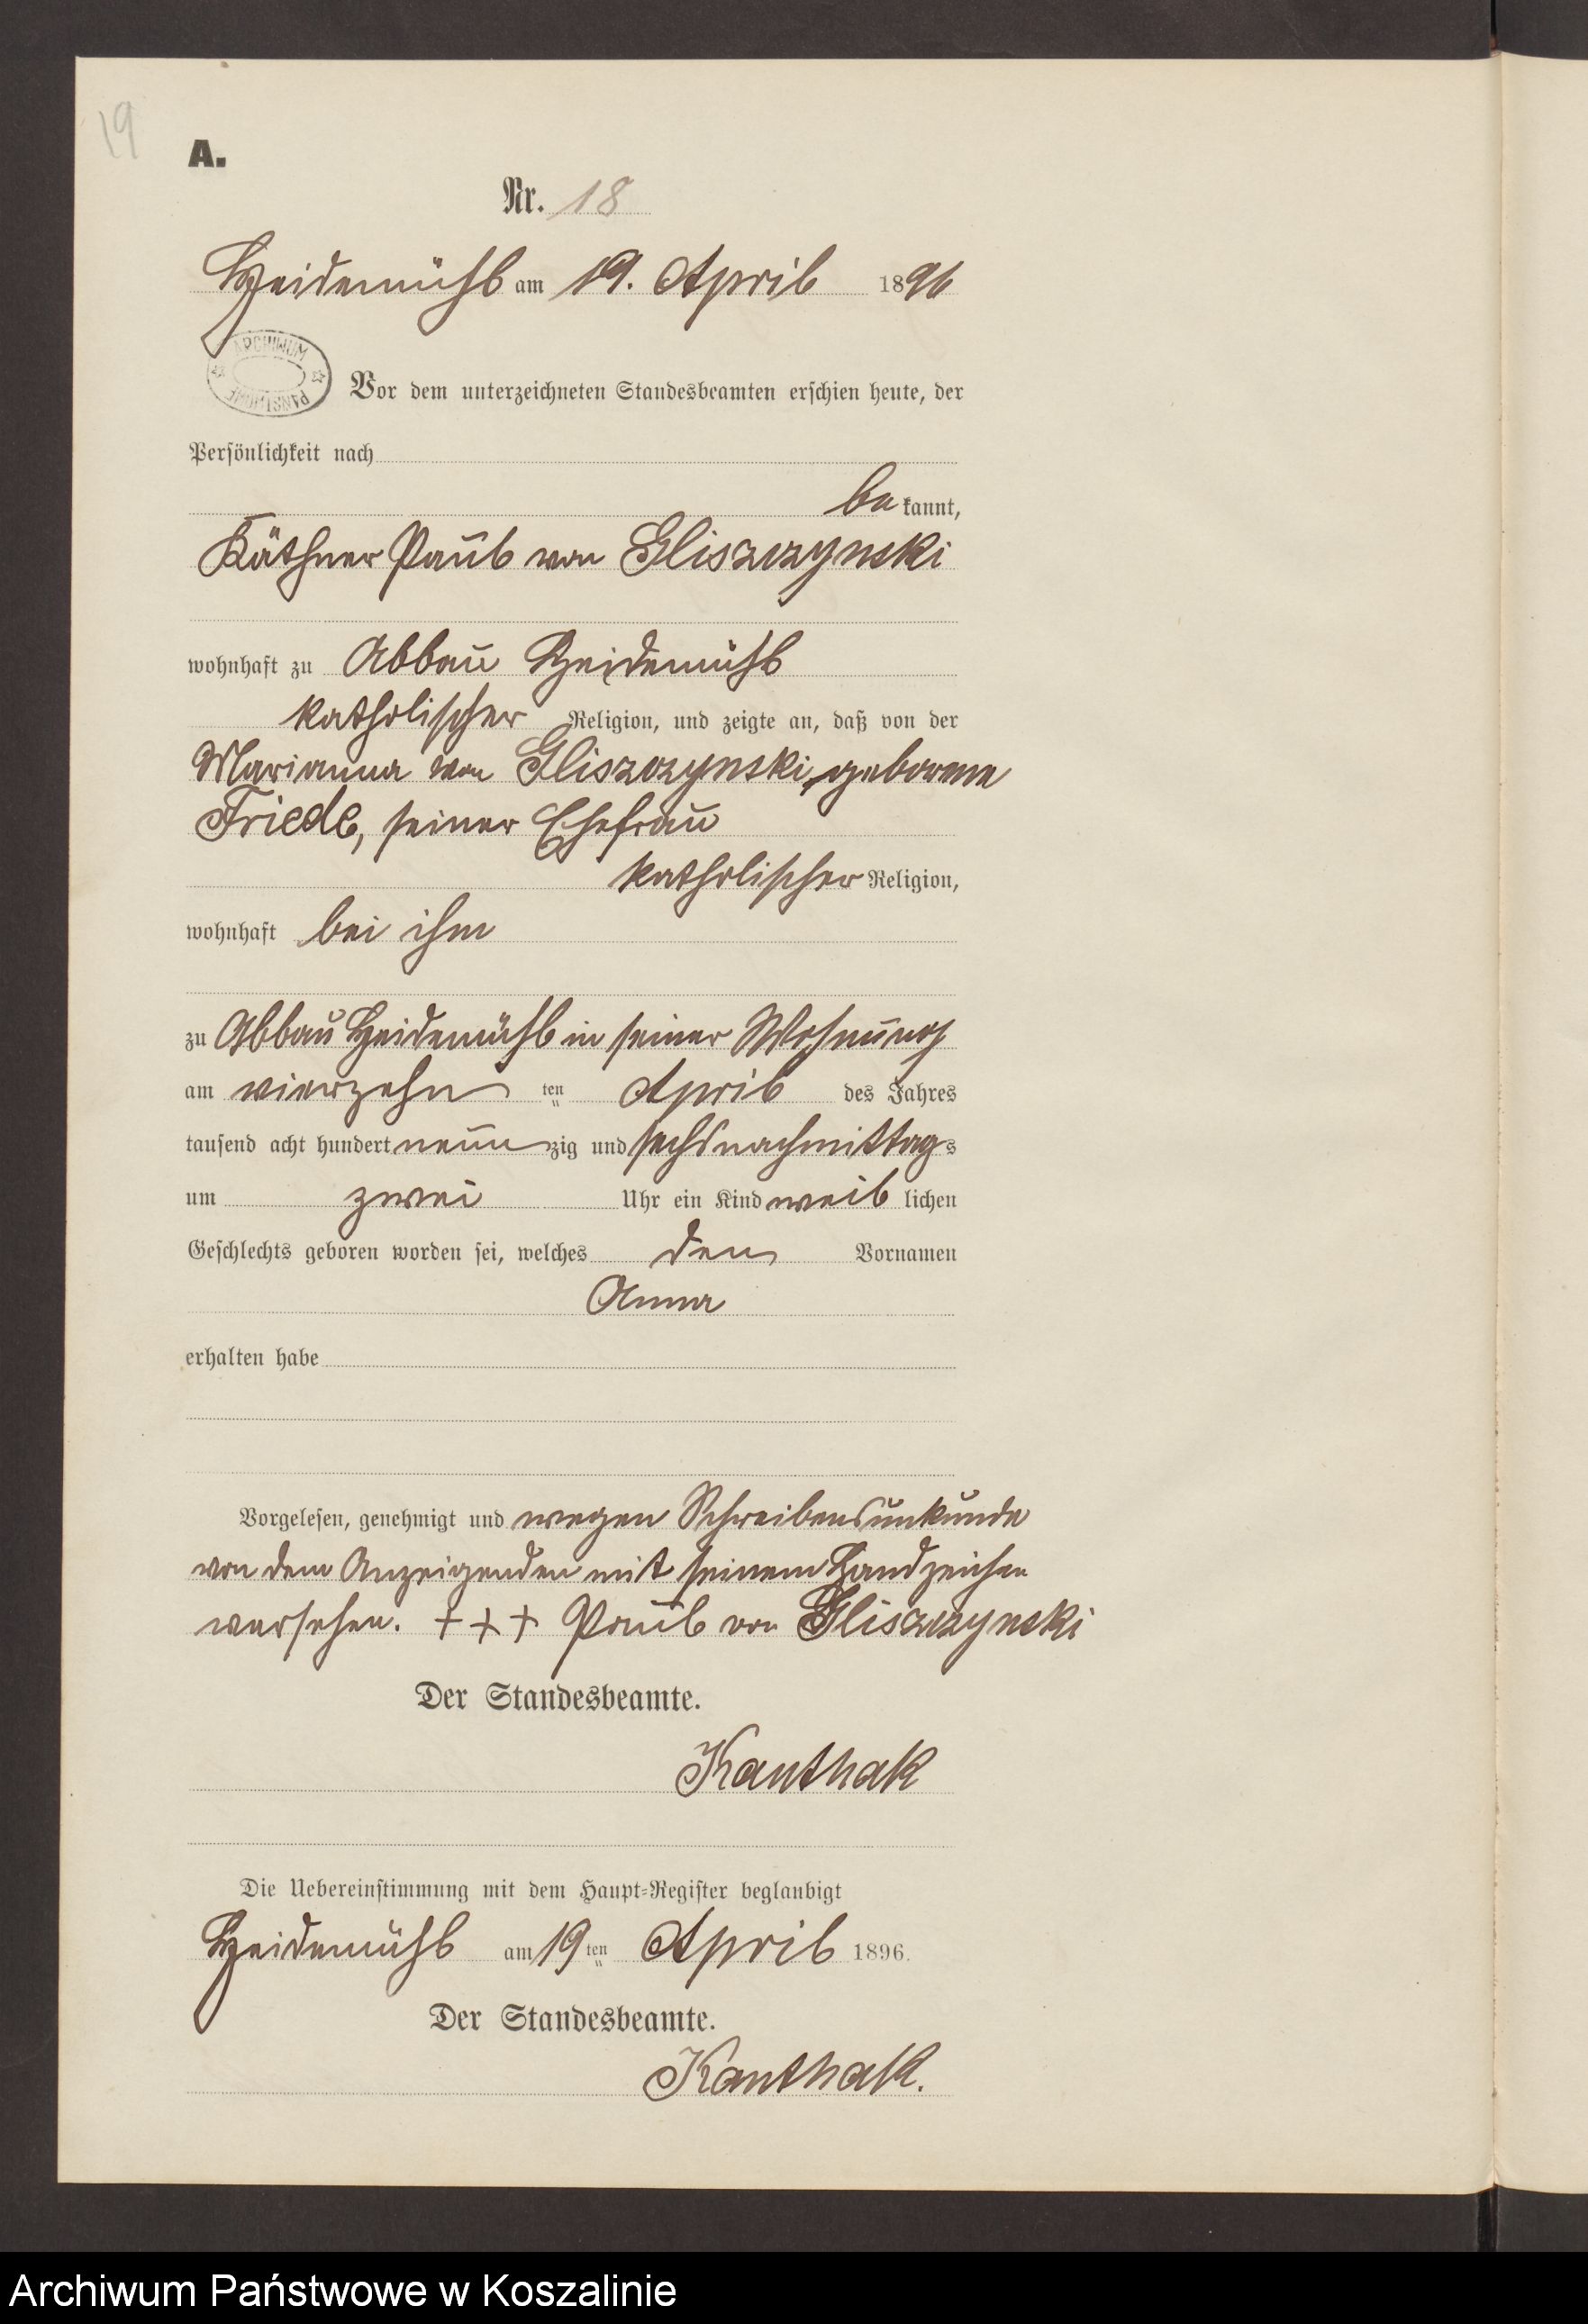 19
A.
Nr. 18
Heidemühl am 19. April 1896
ARCHIWUM
PAŃSTWOWE
Vor dem unterzeichneten Standesbeamten erschien heute, der
Persönlichkeit nach
be kannt,
Käthner Paul von Gliszczynski
wohnhaft zu Abbau Heidemühl
katholischer Religion, und zeigte an, daß von der
Marianna von Gliszczynski, geborene
Friedl, seiner Ehefrau
katholischer Religion,
wohnhaft bei ihm
zu Abbau Heidemühl in seiner Wohnung
am vierzehn ten April des Jahres
tausend acht hundert neun zig und sechs nachmittags
um zwei Uhr ein Kind weib lichen
Geschlechts geboren worden sei, welches den Vornamen
Anna
erhalten habe
Vorgelesen, genehmigt und wegen Schreibensunkunde
von dem Anzeigenden mit seinem Handzeichen
versehen. + + + Paul von Gliszczynski
Der Standesbeamte.
Kanthak
Die Uebereinstimmung mit dem Haupt-Register beglaubigt
Heidemühl am 19 ten April 1896.
Der Standesbeamte.
Kanthak.
Archiwum Państwowe w Koszalinie